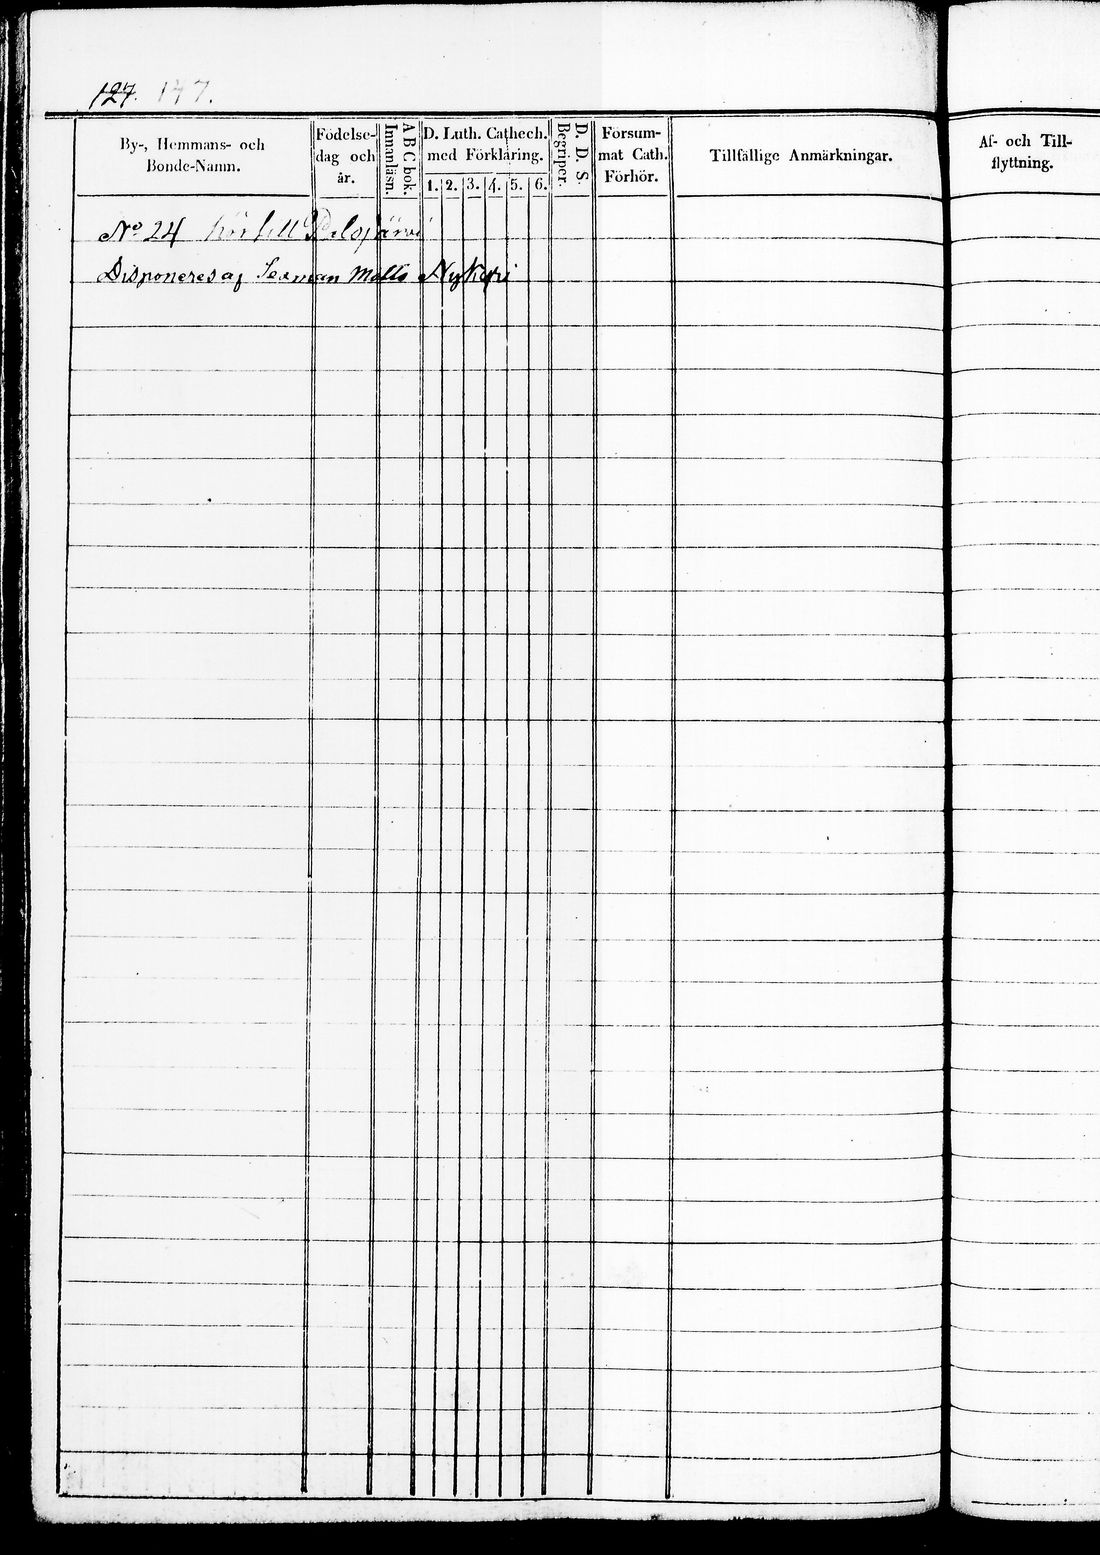 127. 147.
By-, Hemmans- och
Bonde-Namn.
Födelse-
dag och
år.
A B C bok.
Innanläsn.
D. Luth. Cathech.
med Förklaring.
1. 2. 3. 4. 5. 6.
D. D. S.
Begriper.
Försum-
mat Cath.
Förhör.
Tillfällige Anmärkningar.
Af- och Till-
flyttning.
No 24
Disponeres af Sexman Matts Nykyri